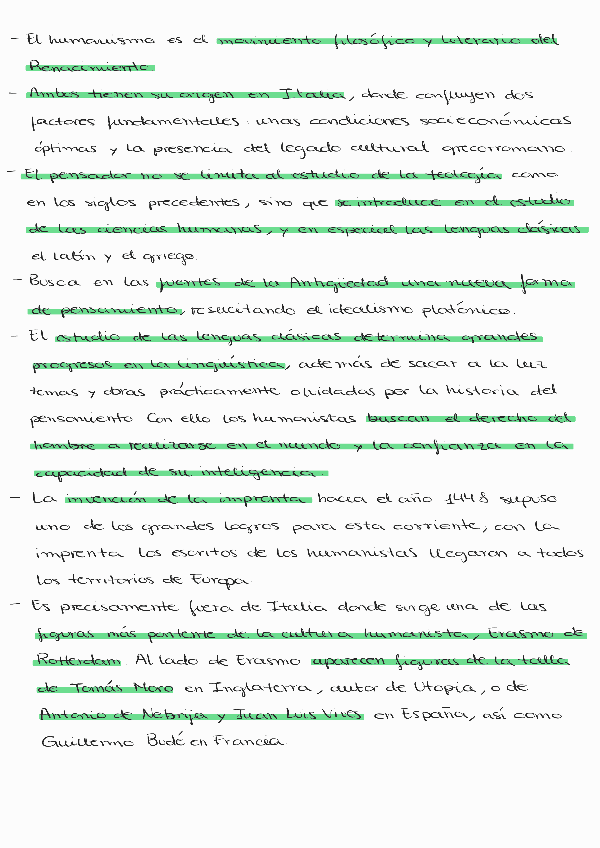 - El humanismo es el movimiento filosófico y literario del
Renacimiento
- Ambos tienen su origen en Italia, donde confluyen dos
factores fundamentales: unas condiciones socioeconómicas
óptimas y la presencia del legado cultural grecorromano.
- El pensador no se limita al estudio de la teología como
en los siglos precedentes, sino que se introduce en el estudio
de las ciencias humanas, y en especial las lenguas clásicas
el latín y el griego.
- Busca en las fuentes de la Antigüedad una nueva forma
de pensamiento, resucitando el idealismo platónico.
- El estudio de las lenguas clásicas determina grandes
progresos en la lingüística, además de sacar a la luz
temas y obras prácticamente olvidadas por la historia del
pensamiento. Con ello los humanistas buscan el derecho del
hombre a realizarse en el mundo y la confianza en la
capacidad de su inteligencia.
- La invención de la imprenta hacia el año 1448 supuso
uno de los grandes logros para esta corriente, con la
imprenta los escritos de los humanistas llegaron a todos
los territorios de Europa.
- Es precisamente fuera de Italia donde surge una de las
figuras más portente de la cultura humanista, Erasmo de
Rotterdam. Al lado de Erasmo aparecen figuras de la talla
de Tomás Moro en Inglaterra, autor de Utopía, o de
Antonio de Nebrija y Juan Luis Vives en España, así como
Guillermo Budé en Francia.